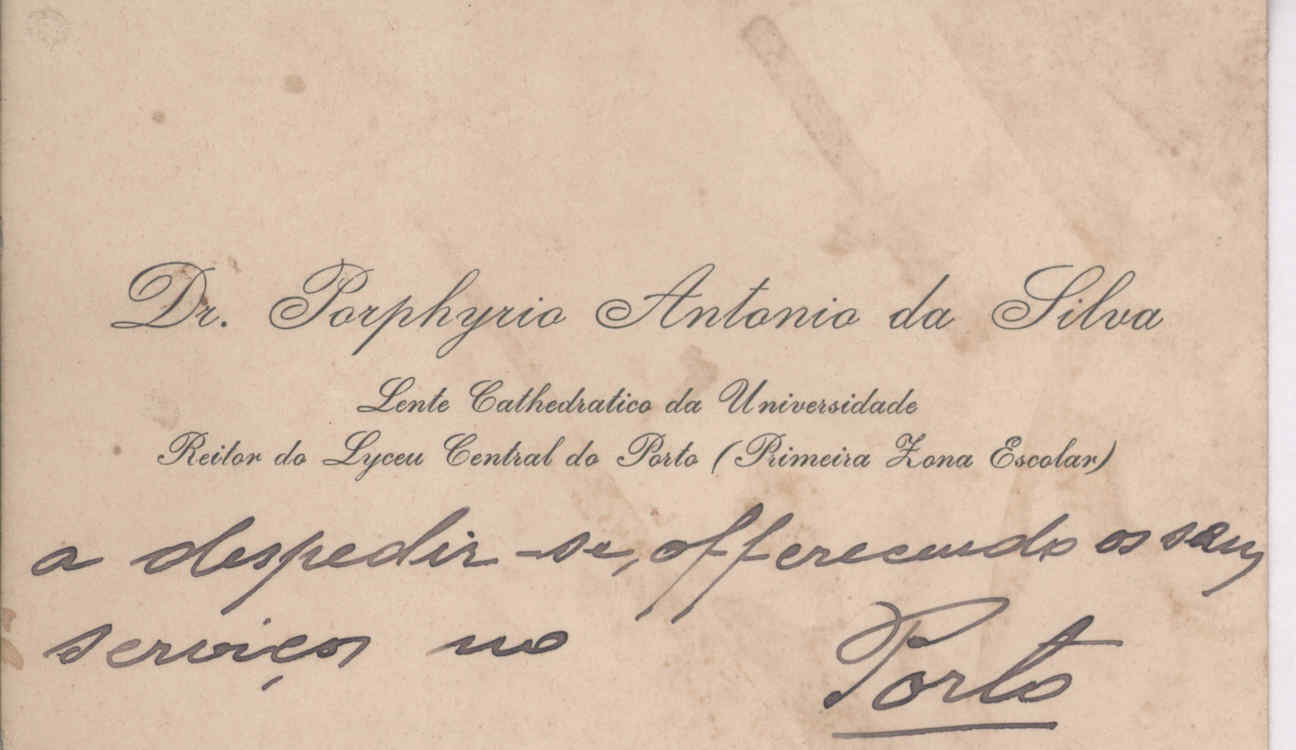 Dr. Porphyrio Antonio da Silva
Lente Cathedratico da Universidade
Reitor do Lyceu Central do Porto (Primeira Zona Escolar)
a despedir-se, offerecendo os seus
serviços no Porto